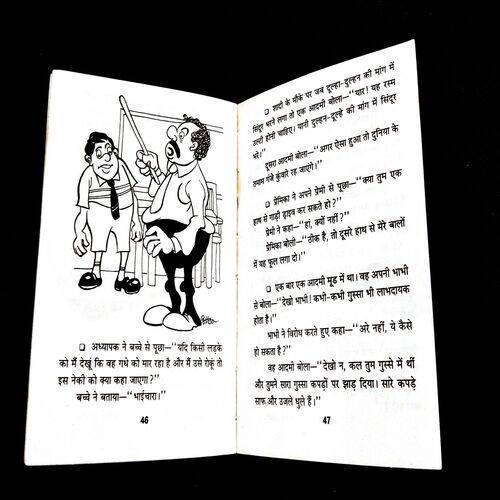 □ अध्यापक ने बच्चे से पूछा—‘‘यदि किसी लड़के
को मैं देखूं कि वह गधे को मार रहा है और मैं उसे रोकूं तो
इस नेकी को क्या कहा जाएगा?’’
बच्चे ने बताया—‘‘भाईचारा।’’
46
□ शादी के मौके पर जब दूल्हा-दुल्हन की मांग में
सिंदूर भरने लगा तो एक आदमी बोला—‘‘यार! यह रस्म
उल्टी होनी चाहिए। यानी दुल्हन-दूल्हे की मांग में सिंदूर
भरे।’’
दूसरा आदमी बोला—‘‘अगर ऐसा हुआ तो दुनिया के
तमाम गंजे कुंवारे रह जाएंगे।’’
□ प्रेमिका ने अपने प्रेमी से पूछा—‘‘क्या तुम एक
हाथ से गाड़ी ड्राइव कर सकते हो?’’
प्रेमी ने कहा—‘‘हां, क्यों नहीं?’’
प्रेमिका बोली—‘‘ठीक है, तो दूसरे हाथ से मेरे बालों
में यह फूल लगा दो।’’
□ एक बार एक आदमी मूड में था। वह अपनी भाभी
से बोला—‘‘देखो भाभी! कभी-कभी गुस्सा भी लाभदायक
होता है।’’
भाभी ने विरोध करते हुए कहा—‘‘अरे नहीं, ये कैसे
हो सकता है?’’
वह आदमी बोला—‘‘देखो न, कल तुम गुस्से में थीं
और तुमने सारा गुस्सा कपड़ों पर झाड़ दिया। सारे कपड़े
साफ और उजले धुले हैं।’’
47